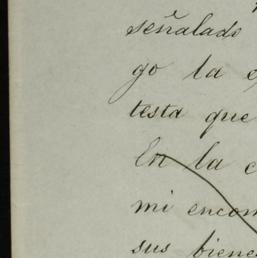 señalado
go la
testa que
En la c
mi encom
sus biene